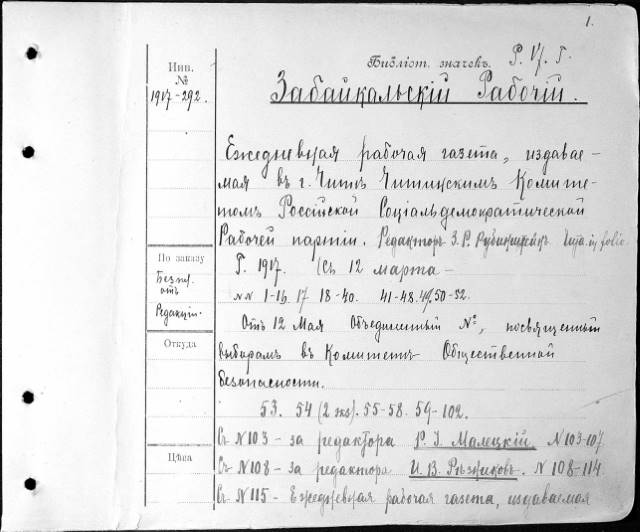 1.
Инв.
№
1917-292.
Библіот. значекъ. Р. VI. Г.
Забайкальскій Рабочій.
Ежедневная рабочая газета, издавае-
мая въ г. Читѣ Читинскимъ Комите-
томъ Россійской Соціальдемократической
Рабочей партіи. Редакторъ З. Р. Чита. in folio.
Г. 1917. (Съ 12 марта —
NN 1-16. 17 18-40. 41-48. 49. 50-52.
Отъ 12 Мая Объединенный №, посвященный
выборамъ въ Комитетъ Общественной
безопасности.
53. 54 (2 экз). 55-58. 59-102.
Съ N103 - за редактора Р. І. Малецкій. N103-107.
Съ N108 - за редактора И. В. Рѣзниковъ. N 108-114
Съ N115 - Ежедневная рабочая газета, издаваемая
По заказу
Безпл.
отъ
Редакціи.
Откуда
Цѣна